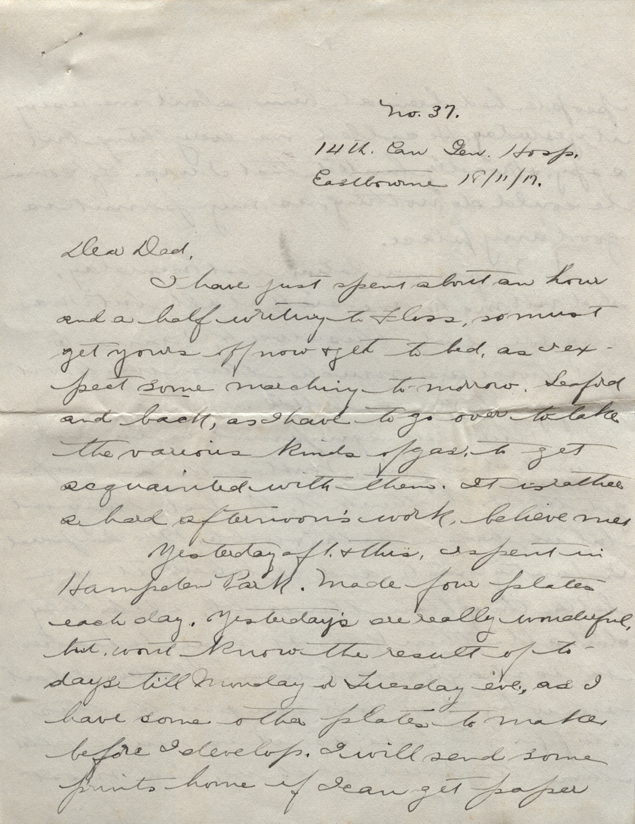 No. 37.
14th. Can Gen. Hosp.
Eastbourne 18/11/17.
Dear Dad,
I have just spent about an hour
and a half writing to Floss, so must
get yours off now & get to bed, as I ex-
pect some marching to-morrow. Seaford
and back, as I have to go over to take
the various kinds of gas, to get
acquainted with them. It is rather
a hard afternoon's work, believe me!
Yesterday aft. & this, I spent in
Hampden Park. Made four plates
each day. Yesterday's are really wonderful,
but wont know the result of to-
days till Monday or Tuesday eve, as I
have some other plates to make
before I develop. I will send some
prints home if I can get paper